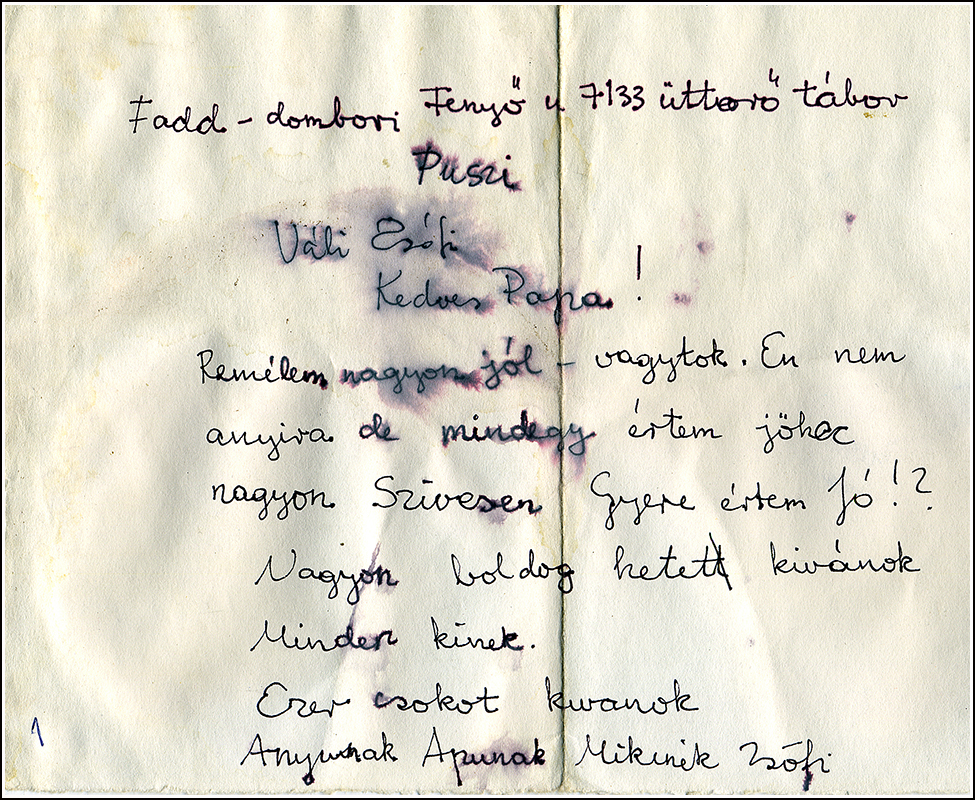 Fadd - dombori Fenyő u 7133 úttörő tábor
Puszi
Váli Zsófi
Kedves Papa!
Remélem nagyon jól - vagytok. En nem
anyira de mindegy értem jöhec
nagyon Szívesen Gyere értem Jó!?
Nagyon boldog hetet kivánok
Minden kinek.
Ezer csokot kivanok
Anyunak Apunak Mikinek Zsófi
1